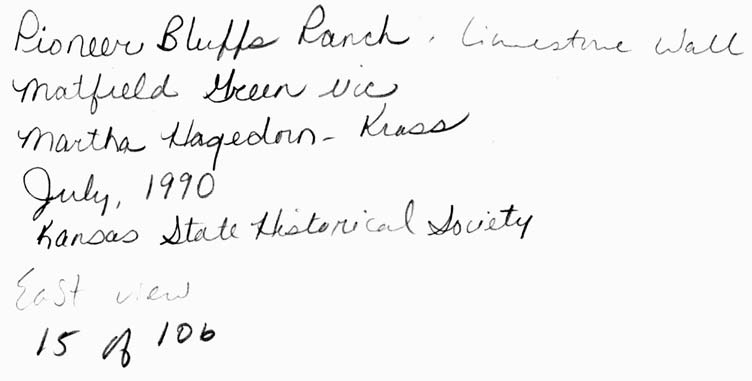 Pioneer Bluffs Ranch, Limestone Wall
Matfield Green vic
Martha Hagedorn-Krass
July, 1990
Kansas State Historical Society
East view
15 of 106